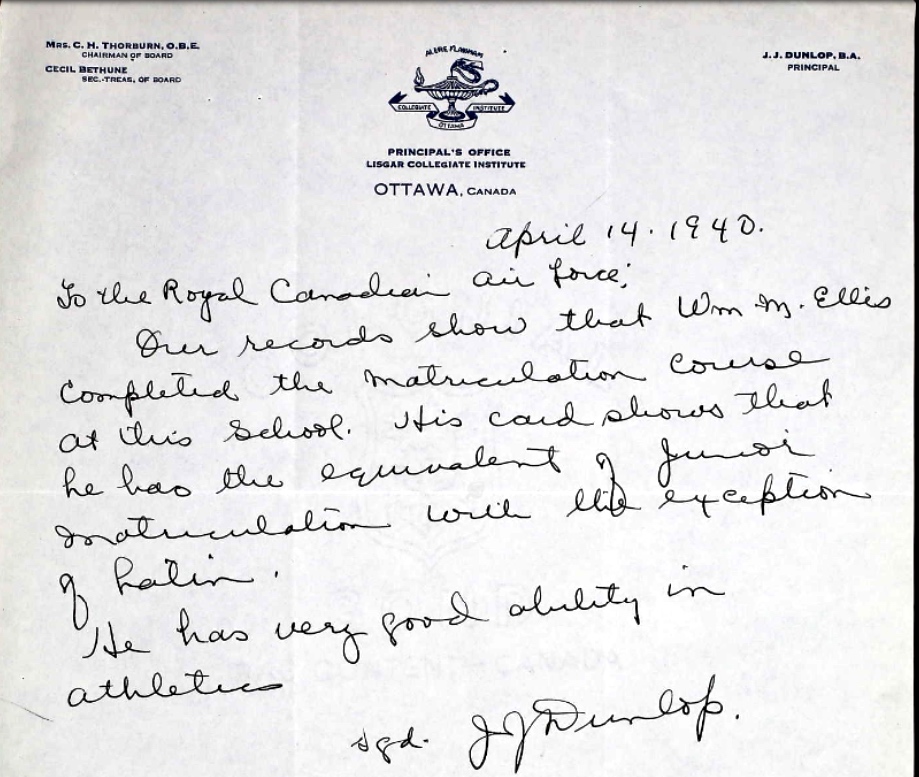 MRS. C. H. THORBURN, O.B.E.
CHAIRMAN OF BOARD
CECIL BETHUNE
SEC.-TREAS. OF BOARD
J. J. DUNLOP, B.A.
PRINCIPAL
ALERE FLAMMAM
COLLEGIATE INSTITUTE
OTTAWA
PRINCIPAL'S OFFICE
LISGAR COLLEGIATE INSTITUTE
OTTAWA, CANADA
April 14. 1940.
To the Royal Canadian Air Force;
Our records show that Wm M. Ellis
completed the Matriculation course
at this School. His card shows that
he has the equivalent of Junior
Matriculation with the exception
of Latin.
He has very good ability in
athletics
sgd. J J Dunlop.